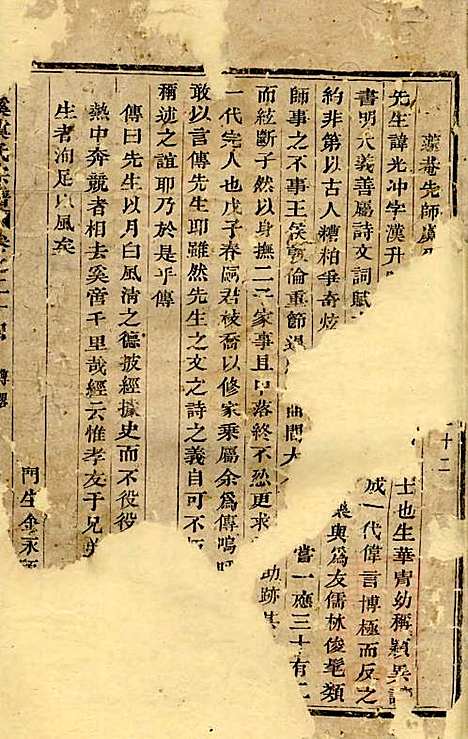 菴先師
先生諱光沖字漢升 士也生華胄幼稱穎異
書明大義善屬詩文詞賦 成一代偉言博極而反之
約非第以古人糟粕爭奇炫 與爲友儒林俊髦類
師事之不事王侯敦倫重節 曲 大 當一應三十有
而絃斷孑然以身撫二子家事且中落終不忍更求 功跡其
一代完人也戊子春 君 喬以修家乘屬余爲傳嗚
敢以言傳先生耶雖然先生之文之詩之義自可不
稱述之誼耶乃於是乎傳
傳曰先生以月白風清之德披經據史而不役役
熱中奔競者相去奚啻千里哉經云惟孝友于兄弟
生者洵足以風矣
門生金永
氏宗譜卷之 傳畧
十二